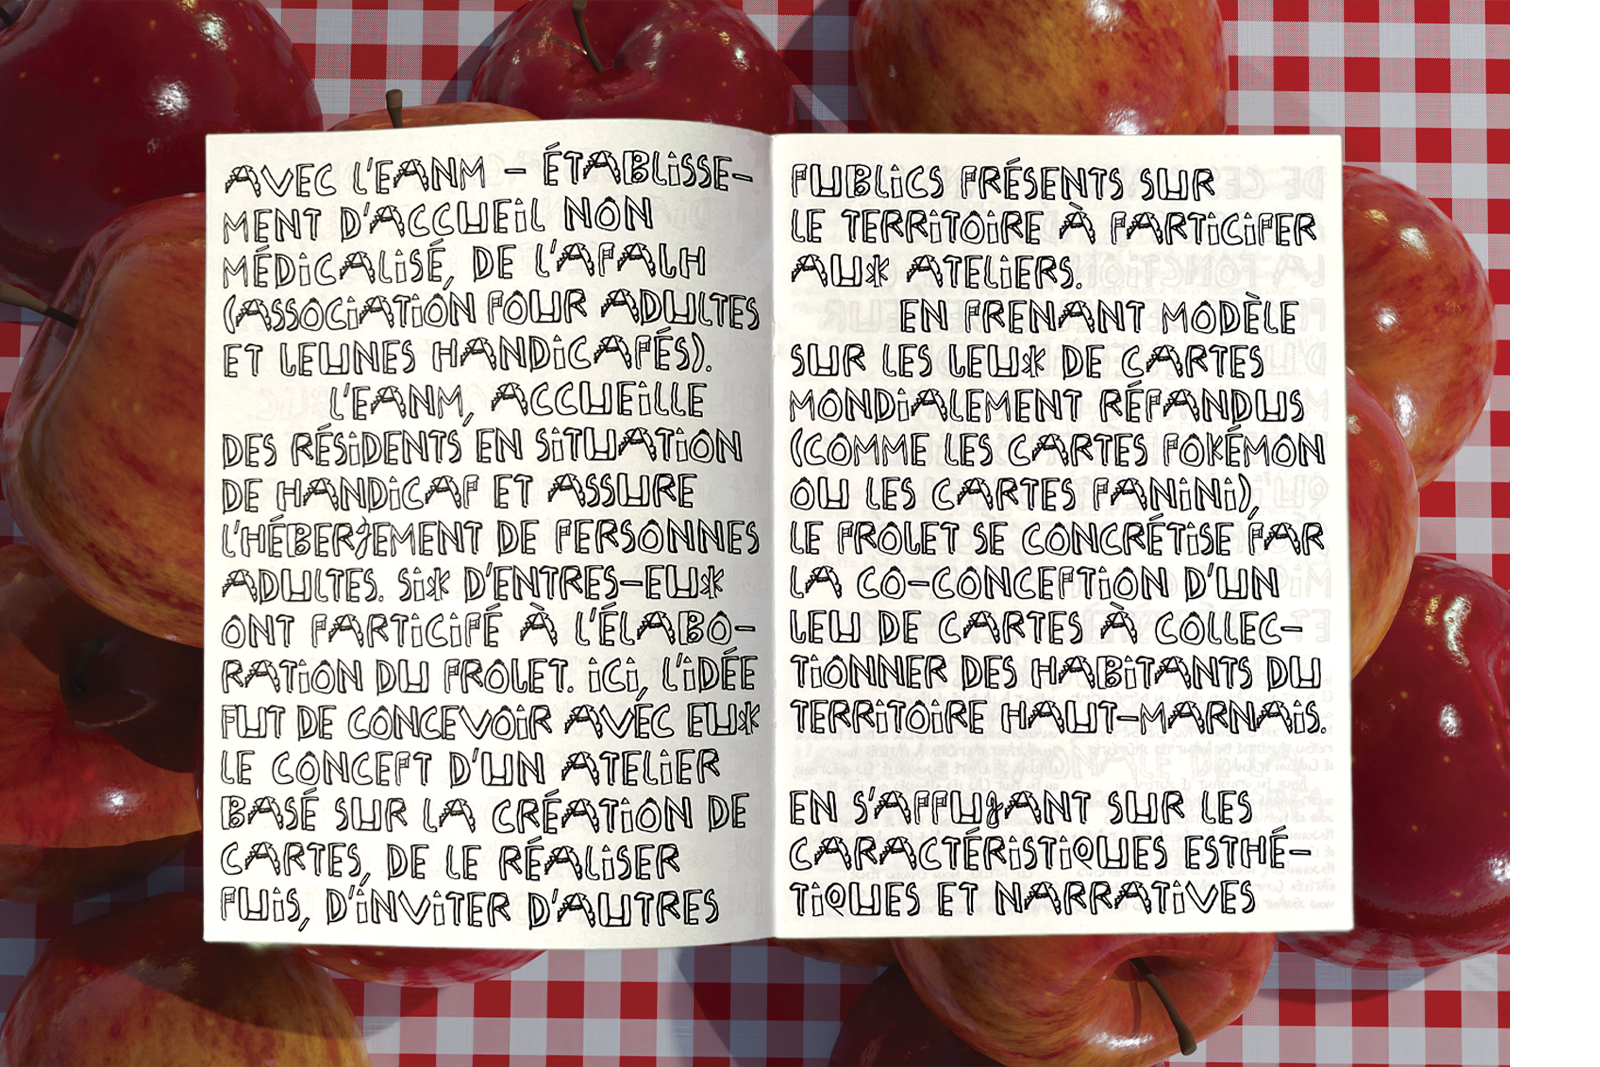 AVEC L'EANM – ÉTABLISSE-
MENT D'ACCUEIL NON
MÉDICALISÉ, DE L'APALH
(ASSOCIATION POUR ADULTES
ET JEUNES HANDICAPÉS).
L'EANM, ACCUEILLE
DES RÉSIDENTS EN SITUATION
DE HANDICAP ET ASSURE
L'HÉBERGEMENT DE PERSONNES
ADULTES. SIX D'ENTRES-EUX
ONT PARTICIPÉ À L'ÉLABO-
RATION DU PROJET. ICI, L'IDÉE
FUT DE CONCEVOIR AVEC EUX
LE CONCEPT D'UN ATELIER
BASÉ SUR LA CRÉATION DE
CARTES, DE LE RÉALISER
PUIS, D'INVITER D'AUTRES
PUBLICS PRÉSENTS SUR
LE TERRITOIRE À PARTICIPER
AUX ATELIERS.
EN PRENANT MODÈLE
SUR LES JEUX DE CARTES
MONDIALEMENT RÉPANDUS
(COMME LES CARTES POKÉMON
OU LES CARTES PANINI),
LE PROJET SE CONCRÉTISE PAR
LA CO-CONCEPTION D'UN
JEU DE CARTES À COLLEC-
TIONNER DES HABITANTS DU
TERRITOIRE HAUT-MARNAIS.
EN S'APPUYANT SUR LES
CARACTÉRISTIQUES ESTHÉ-
TIQUES ET NARRATIVES